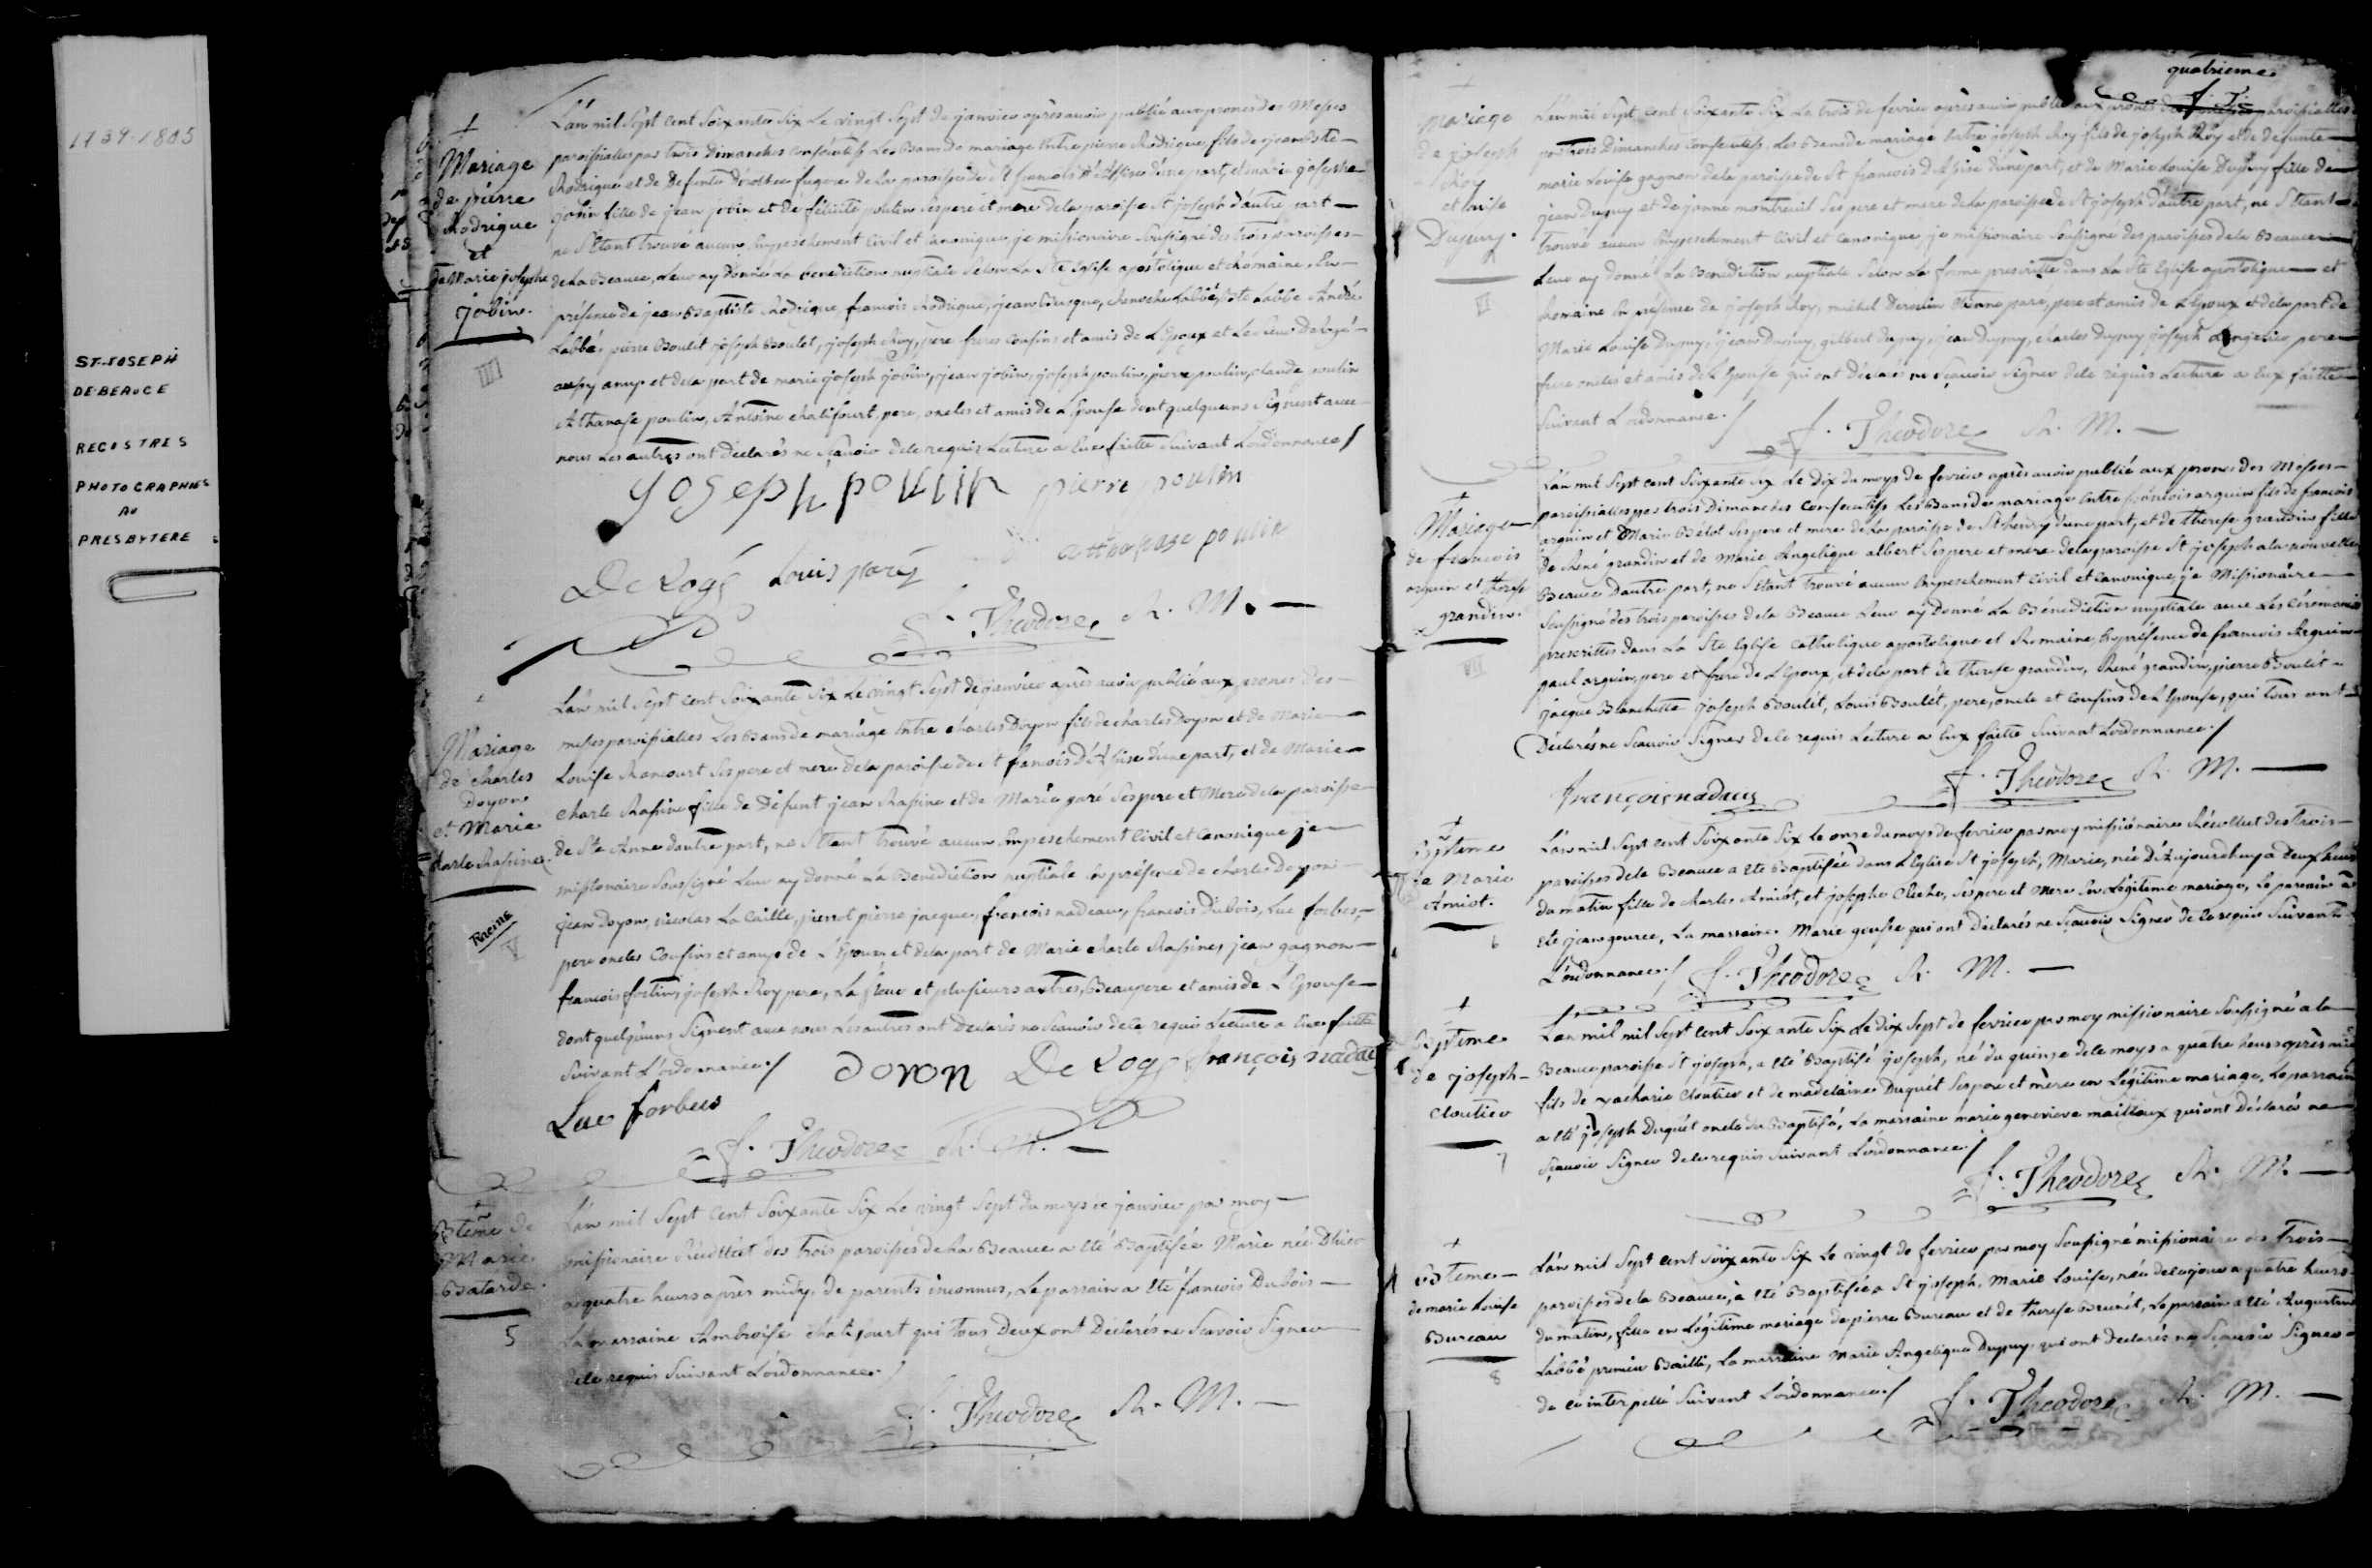 1739-1805
ST-JOSEPH
DE BEAUCE
REGISTRES
PHOTOGRAPHIES
AU
PRESBYTERE
Mariage
de pierre
Rodrigue
et
de Marie josephe
jobin.
IIII
L'án mil Sept Cent Soixante Six Le vingt Sept de janvier après avoir publié aux prones des Messes
paroissialles par trois Dimanches consecutifs Les Bans de mariage Entre pierre Rodrigue fils de jean Bte
Rodrigue et de Defunte dorothee fugere de La paroisse de St francois D'Assise d'une part, et marie josephe
jobin fille de jean jobin et de félicité poulin Ses pere et mere dela paroisse St joseph d'autre part
ne S'Etant trouvé aucun Empeschement Civil et Canonique, je missionaire Soussigné des trois paroisses
de La Beauce, Leur ay Donné La benediction nuptiale Selon La Ste Eglise apostolique et Romaine, En
présence de jean Baptiste Rodrigue francois Rodrigue, jean Busque, Labbé, Bte Labbe André
Labbé, pierre Boulet joseph Boulet, joseph Roy, pere freres Cousins et amis de L'Epoux et Le Sieur Delogé
et dela part de marie joseph jobin, jean jobin, joseph poulin, pierre poulin, claude poulin
Athanase poulin, Antoine chalifourt, pere, oncles et amis de L'Epouse dont quelqueuns Signent avec
nous Les autres ont déclarés ne Sçavoir dele requis Lecture a Eux faitte Suivant Lordonnance /
joseph poulin pierre poulin
De Logé Louis paré atthanase poulin
f. Theodore R. M.
Mariage
de charles
Doyon
et Marie
charle Rassine.
Racine
V
L'án mil Sept Cent Soixante Six Le vingt Sept de janvier après avoir publié aux prones des
messes paroissialles Les Bans de mariage Entre charles Doyon fils de charles Doyon et de Marie
Louise Rancourt Ses pere et mere dela paroisse de St francois D'Assise d'une part, et de Marie
charle Rassine fille de Défunt jean Rassine et de Marie paré Ses pere et Mere dela paroisse
de Ste Anne dautre part, ne S'Etant trouvé aucun Empeschement Civil et Canonique je
missionaire Soussigné Leur ay donné La Benediction nuptiale En présence de charle doyon
jean doyon, nicolas La Caille, pierrot pierre jacque, francois nadeau, francois Dubois, Luc forbes,
pere oncles Cousins et amys de L'Epoux et dela part de Marie charle Rassine, jean gagnon
francois fortin, joseph Roy pere, La fleur et plusieurs autres, Beaupere et amis de L'Epouse
dont quelqu'uns Signent avec nous Les autres ont Déclarés ne Scavoir dele requis Lecture a Eux faitte
Suivant L'ordonnance / doyon De Logé françois nadau
Luc forbes
f. Theodore R. M.
Btême de
Marie
Batarde.
5
L'án mil Sept Cent Soixante Six Le vingt Sept du moys de janvier par moy
missionaire Récollect des Trois paroisses de La Beauce a Eté Baptisée Marie née D'hier
a quatre heurs après midy, de parents inconnus, Le parrain a Eté francois Dubois
La marraine Ambroise chalifourt qui tous Deux ont Déclarés ne Scavoir Signer
dele requis Suivant L'ordonnance /
f. Theodore R. M.
quatrieme
f. T.
Mariage
de joseph
Roy
et Louise
Dupuy.
VI
L'án mil Sept Cent Soixante Six Le trois de fevrier après avoir publié aux prones des paroissialles
par trois Dimanches consecutifs, Les Bans de mariage Entre joseph Roy fils de joseph Roy et de defunte
marie Louise gagnon dela paroisse de St francois D'Assise d'une part, et de Marie Louise Dupuy fille de
jean Dupuy et de jeanne montreuil Ses pere et mere de La paroisse de St joseph d'autre part, ne S'Etant
trouvé aucun Empeschement Civil et Canonique je missionaire Soussigné des paroisses dela Beauce
Leur ay donné La Benediction nuptiale Selon La forme prescritte dans La Ste Eglise apostolique et
Romaine En présence de joseph Roy, michel Etienne paré, pere et amis de L'Epoux et dela part de
Marie Louise Dupuy, jean Dupuy, gilbert Dupuy, jean Dupuy, charles Dupuy joseph pere
frere oncles et amis de L'Epouse qui ont Déclarés ne Sçavoir Signer dele requis Lecture a Eux faitte
Suivant L'ordonnance /
f. Theodore R. M.
Mariage
de francois
arguin et therese
grandin.
VII
L'án mil Sept Cent Soixante Six Le dix du moys de fevrier après avoir publié aux prones des Messes
paroissialles par trois Dimanches Consecutifs Les Bans de mariage Entre francois arguin fils de francois
arguin et Marie Ses pere et mere de La paroisse de St henry d'une part, et de therese grandin fille
de René grandin et de Marie Angelique albert Ses pere et mere dela paroisse St joseph a la nouvelle
Beauce D'autre part, ne S'Etant trouvé aucun Empeschement Civil et Canonique je Missionaire
Soussigné des trois paroisses dela Beauce Leur ay Donné La Bénédiction nuptiale avec Les Cérémonies
prescrittes dans La Ste Eglise Catholique apostolique et Romaine, En présence de francois Arguin
paul arguin, pere et frere de L'Epoux, et dela part de therese grandin, René grandin, pierre Boulét
jacque Blanchette joseph Boulét, Louis Boulét, pere, oncle et cousins de L'Epouse, qui tous ont
Déclarés ne Scavoir Signer dele requis Lecture a Eux faitte Suivant Lordonnance /
françois nadau f. Theodore R. M.
Bptême
de Marie
Amiot.
6
L'án mil Sept Cent Soixante Six Le onze du moys de fevrier par moy missionaire Récollect des Trois
paroisses dela Beauce a Eté Baptisée dans L'Eglise St joseph, Marie, née D'Aujourdhuy a Deux heurs
du matin fille de charles Amiot, et josephe Cliche, Ses pere et Mere En Légitime mariage, Le parrain a
Eté jean La marraine Marie qui ont Déclarés ne Sçavoir Signer de ce requis Suivant
L'ordonnance / f. Theodore R. M.
Bptême
de joseph
Cloutier
7
L'an mil mil Sept Cent Soixante Six Le dix Sept de fevrier par moy missionaire Soussigné a la
Beauce paroisse St joseph, a Eté Baptisé joseph, né du quinze dele moys a quatre heurs après midi
fils de zacharie Cloutier et de madelaine Duquét Ses pere et mère en Légitime mariage, Le parrain
a Eté joseph Duquét oncle du Baptisé, La marraine marie genevieve mailloux qui ont Déclarés ne
Sçavoir Signer dele requis Suivant Lordonnance /
f. Theodore R. M.
Bteme
de marie Louise
Bureau
8
L'án mil Sept Cent Soixante Six Le vingt de fevrier par moy Soussigné missionaire des Trois
paroisses dela Beauce, a Eté Baptisée a St joseph, Marie Louise, née dele jour a quatre heurs
du matin, fille en Légitime mariage de pierre Bureau et de therese Brunét, Le parrain a Eté Augustin
Labbé premier Bailli, La marraine Marie Angelique Dupuy, qui ont declarés ne Sçavoir Signer
de ce interpellé Suivant L'ordonnance / f. Theodore R. M.